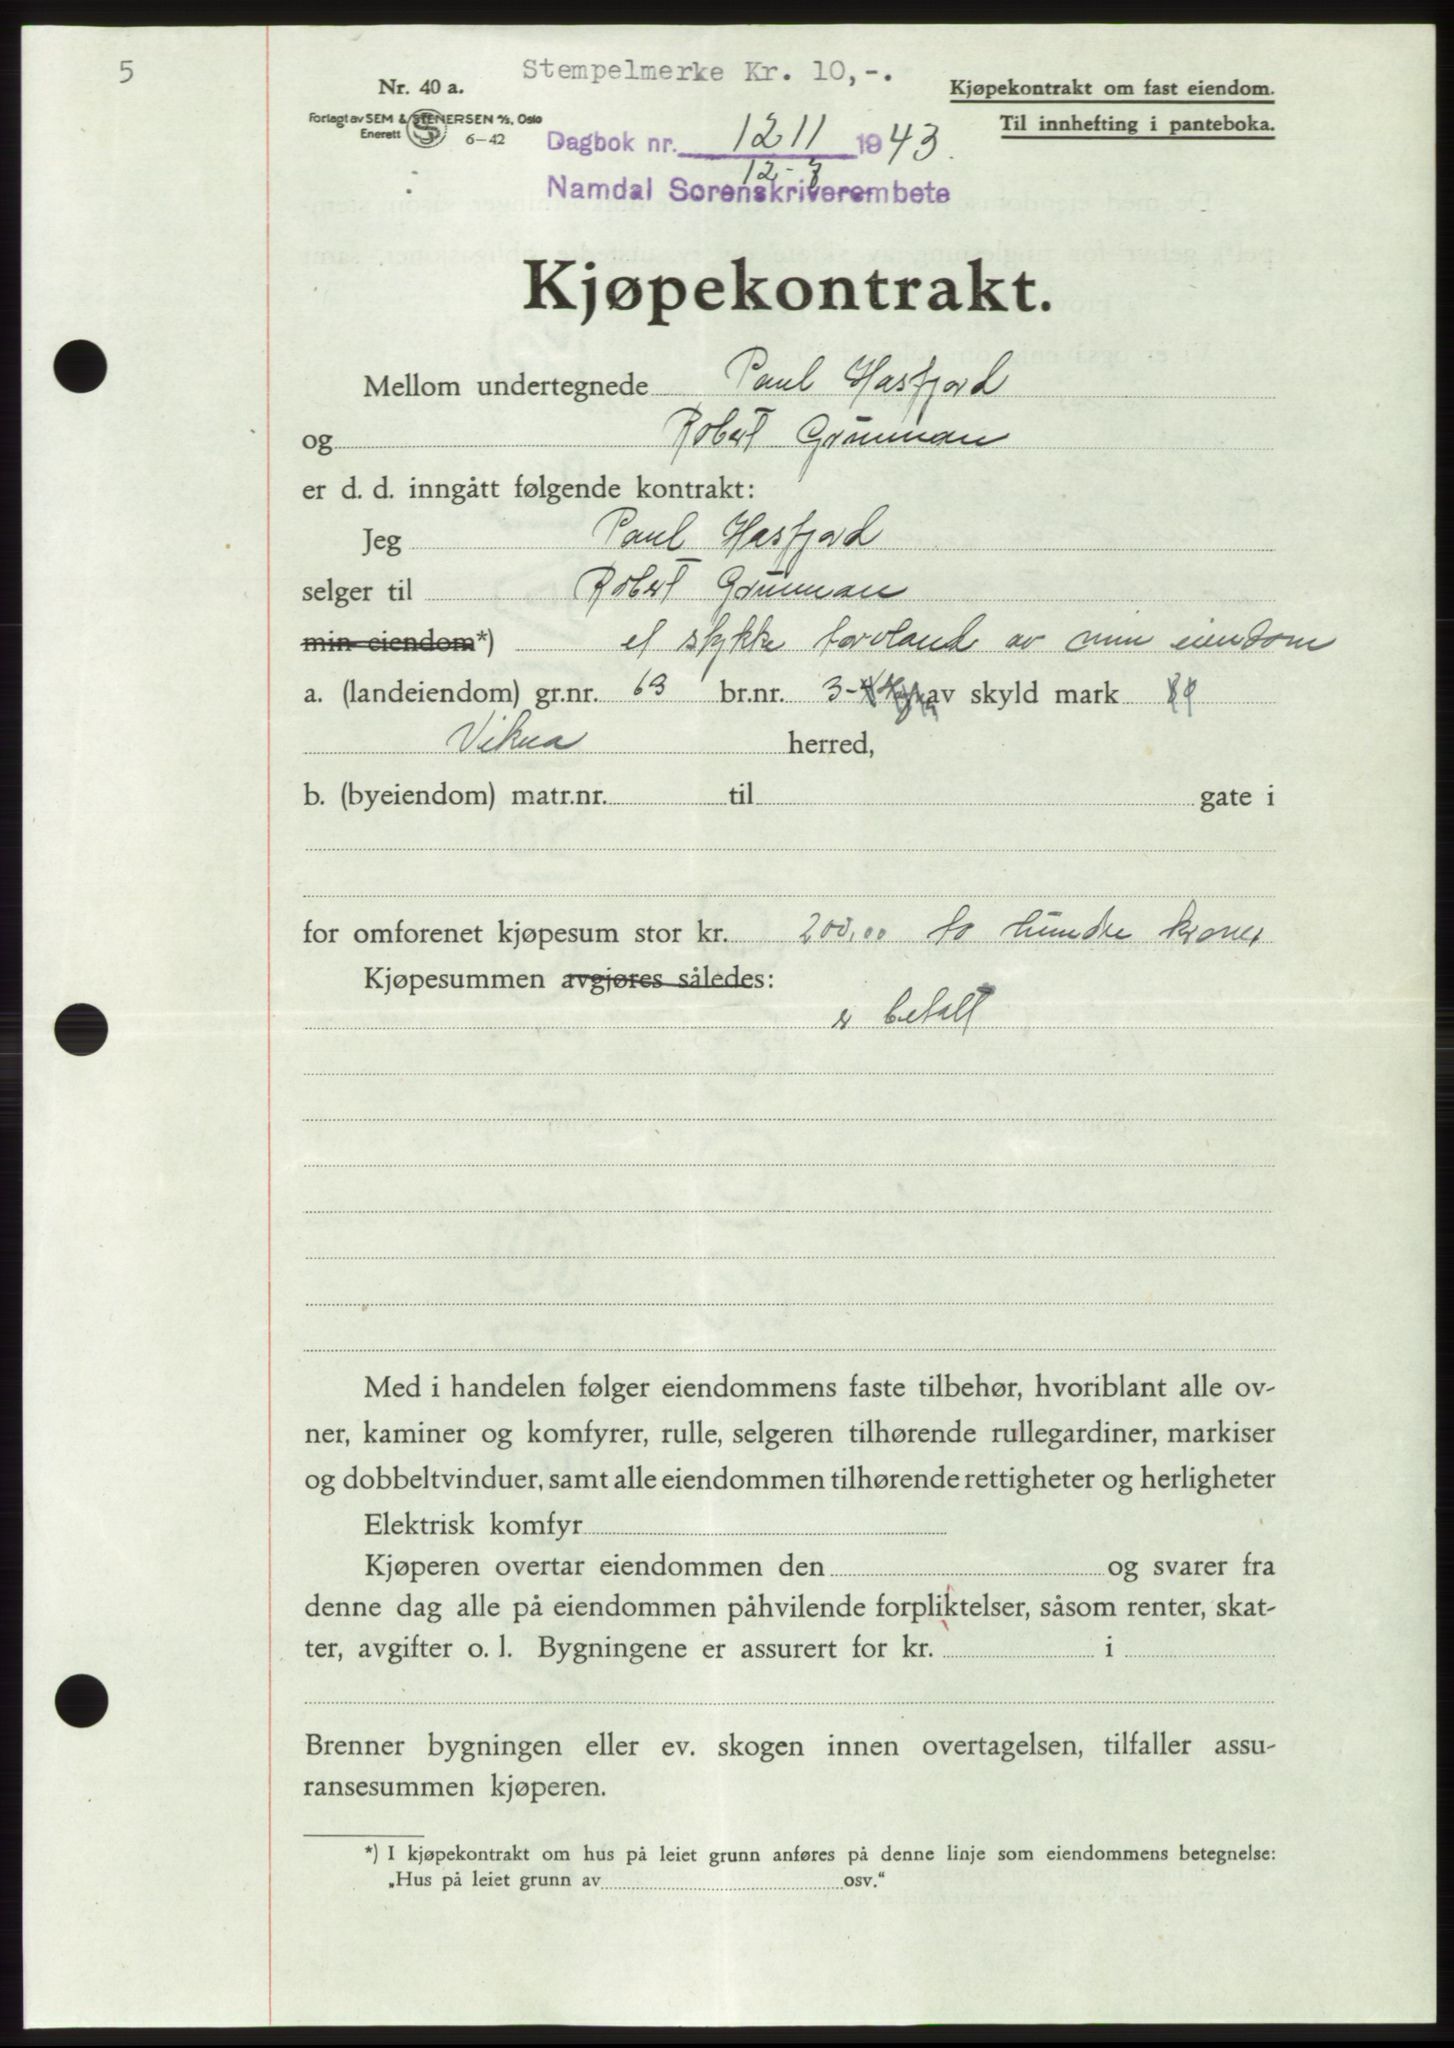 5
Stempelmerke Kr. 10,-.
Nr. 40 a.
Kjøpekontrakt om fast eiendom.
Forlagt av SEM & STENERSEN A/S, Oslo
Enerett
6-42
Til innhefting i panteboka.
Dagbok nr. 1211 1943.
12-7
Namdal Sorenskriverembete
Kjøpekontrakt.
Mellom undertegnede Paul Hasfjord
og Robert Grünman
er d. d. inngått følgende kontrakt:
Jeg Paul Hasfjord
selger til Robert Grünman
min eiendom*) et stykke torvland av min eiendom
a. (landeiendom) gr.nr. 63 br.nr. 3 av skyld mark
Vikna herred,
b. (byeiendom) matr.nr. til gate i
for omforenet kjøpesum stor kr. 200,00 to hundre kroner
Kjøpesummen avgjøres således:
er betalt
Med i handelen følger eiendommens faste tilbehør, hvoriblant alle ov-
ner, kaminer og komfyrer, rulle, selgeren tilhørende rullegardiner, markiser
og dobbeltvinduer, samt alle eiendommen tilhørende rettigheter og herligheter
Elektrisk komfyr
Kjøperen overtar eiendommen den og svarer fra
denne dag alle på eiendommen påhvilende forpliktelser, såsom renter, skat-
ter, avgifter o. l. Bygningene er assurert for kr. i
Brenner bygningen eller ev. skogen innen overtagelsen, tilfaller assu-
ransesummen kjøperen.
*) I kjøpekontrakt om hus på leiet grunn anføres på denne linje som eiendommens betegnelse:
„Hus på leiet grunn av osv.“